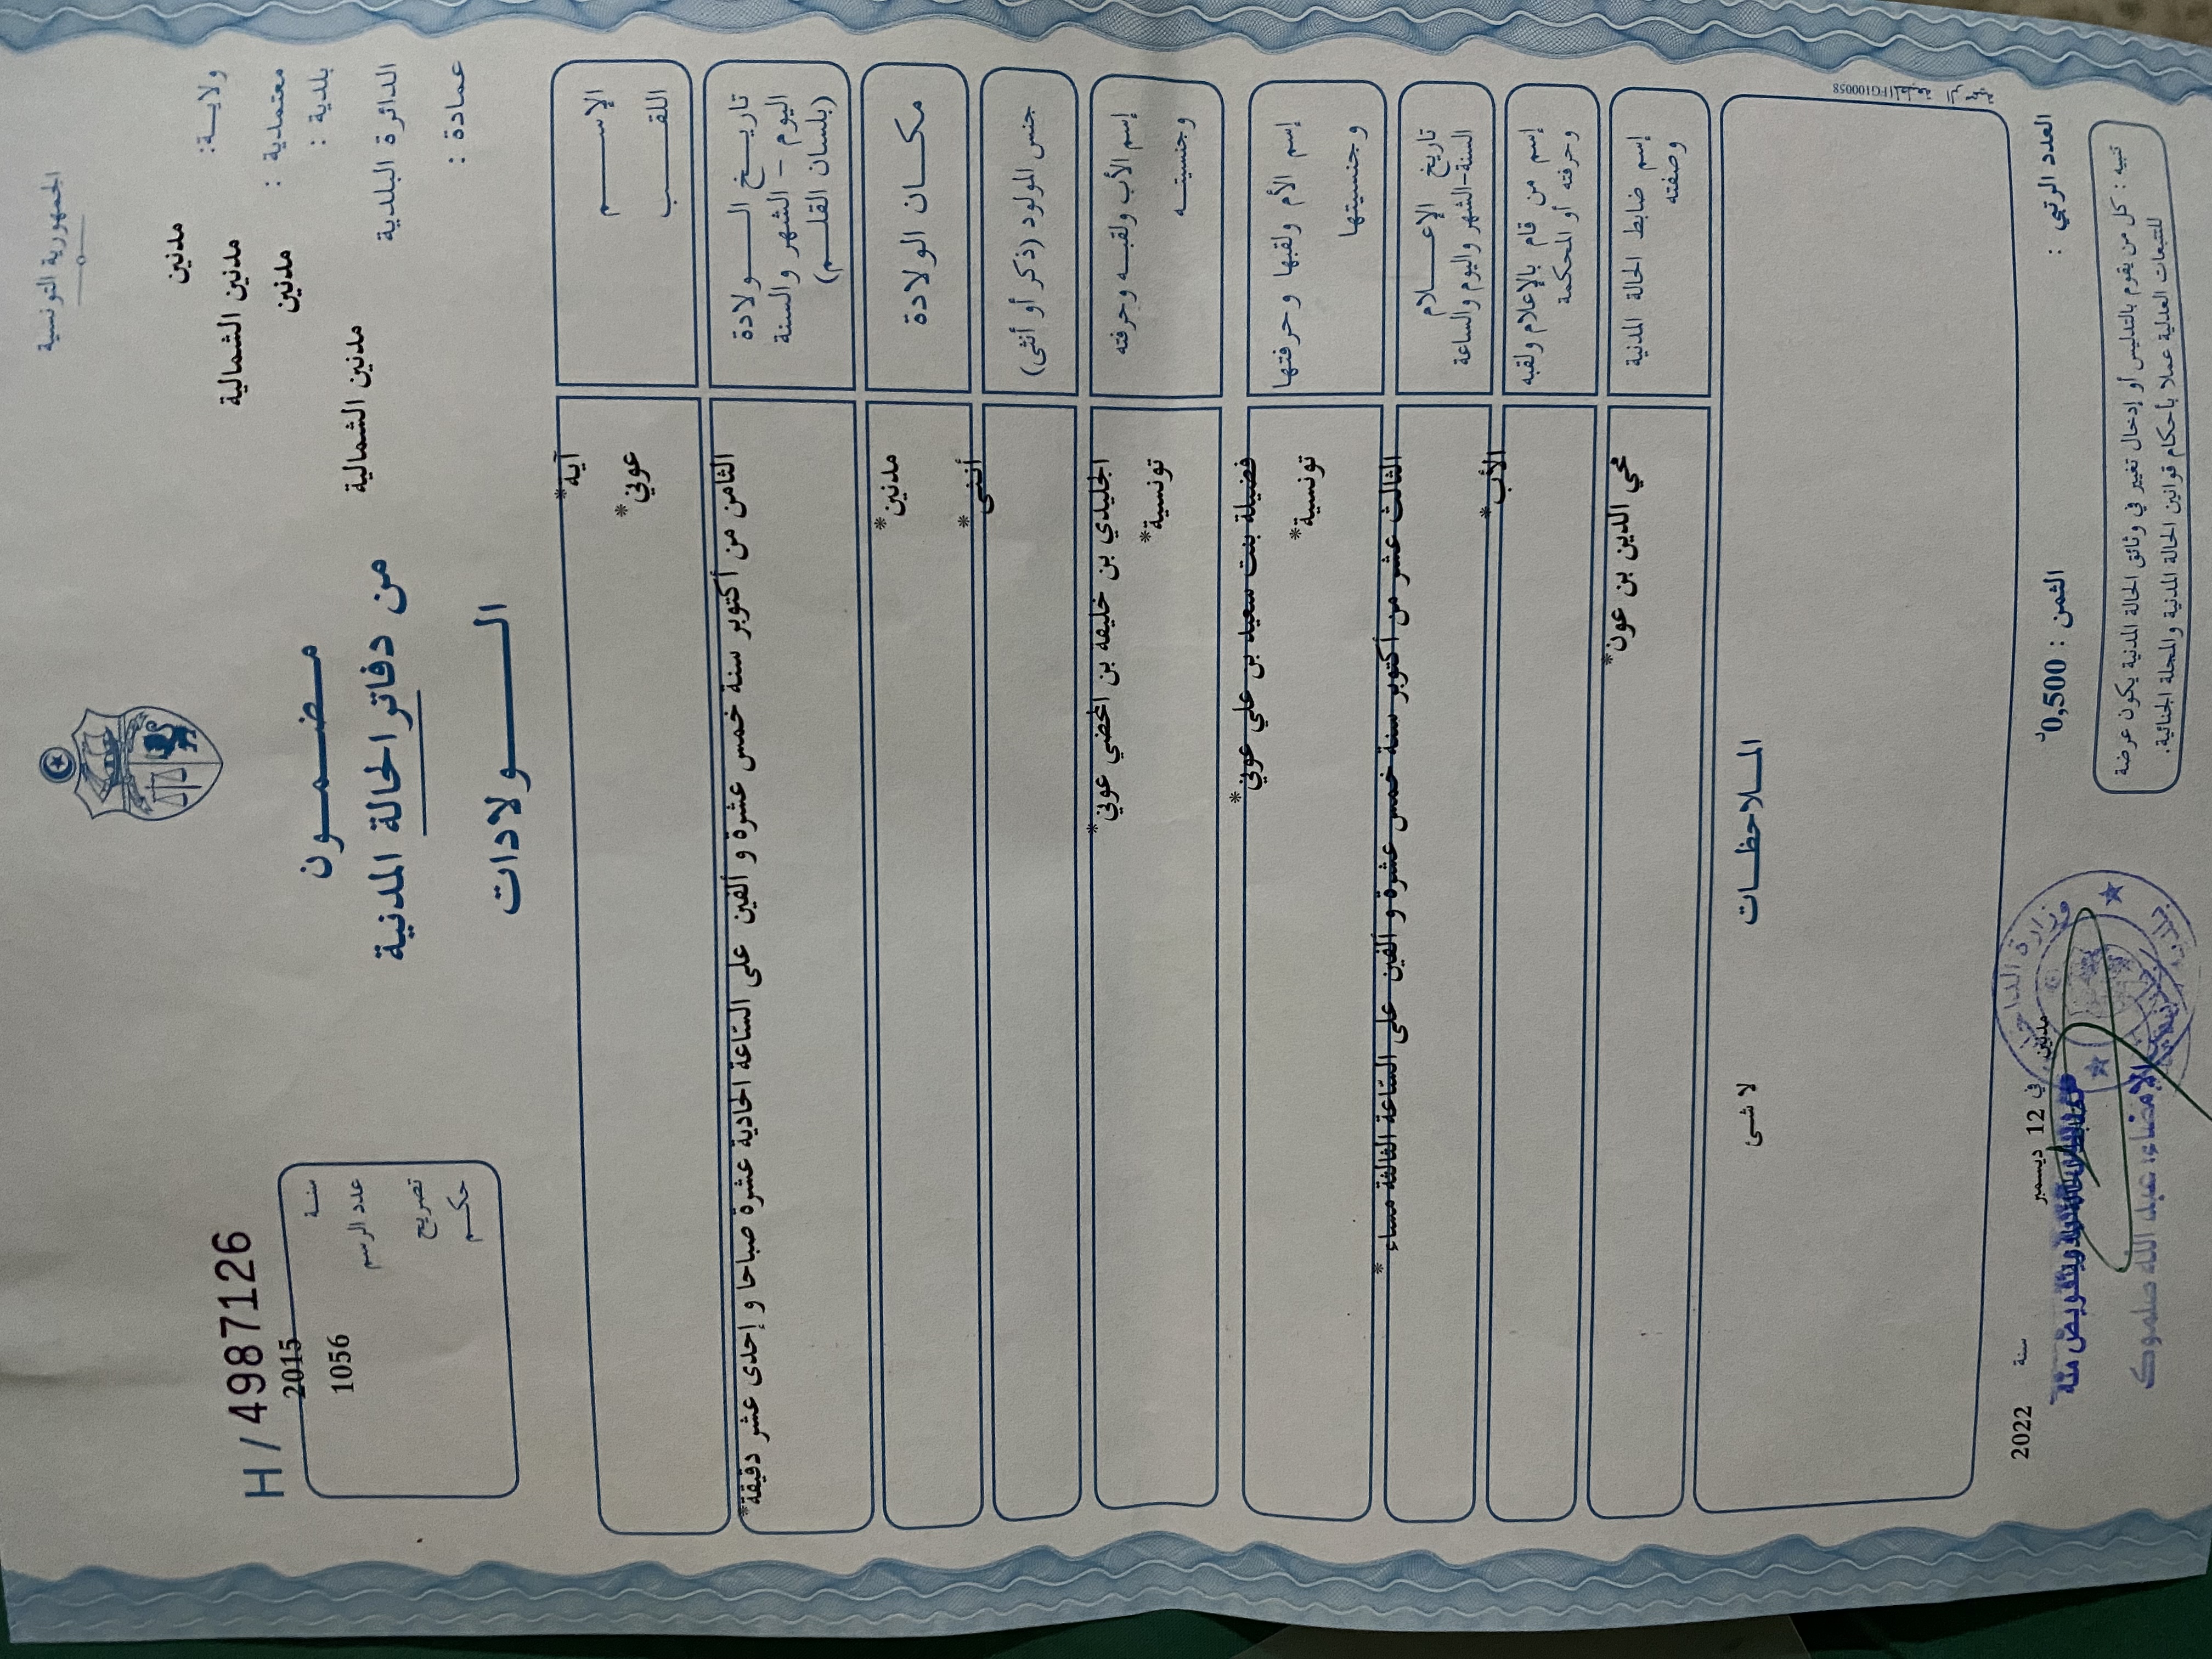 الجمهورية التونسية
ولايـــة: مدنين
معتمدية : مدنين الشمالية
بلدية : مدنين
الدائرة البلدية مدنين الشمالية
عمادة :
مـضـمـــون
من دفاتر الحالة المدنية
الـــــولادات
H / 4987126
سنـة 2015
عدد الرسم 1056
تصريح
حكـم
الإســـــم آية*
اللقــــب عوني*
تاريـــخ الـــــولادة
اليوم – الشهر والسنة
(بلسان القلــم)
الثامن من أكتوبر سنة خمس عشرة و ألفين على السّاعة الحادية عشرة صباحا و إحدى عشر دقيقة*
مكـــان الولادة مدنين*
جنس المولود (ذكر أو أنثى) أنثى*
إسم الأب ولقبـــه وحرفته الجليدي بن خليفه بن الخضي عوني*
وجنسيتـــه تونسية*
إسم الأم ولقبها وحرفتها فضيلة بنت سعيد بن علي عوني*
وجنسيتها تونسية*
تاريخ الإعــــلام
السنة-الشهر واليوم والساعة
الثالث عشر من أكتوبر سنة خمس عشرة و ألفين على السّاعة الثالثة مساء*
إسم من قام بالإعلام ولقبه
وحرفته أو المحكمة
الأب*
إسم ضابط الحالة المدنية
وصفته
محي الدين بن عون*
الملاحظــات
لا شئ
FG100058
العدد الرتبي :
الثمن : 0,500د
مدنين في 12 ديسمبر سنة 2022
تنبيه : كل من يقوم بالتدليس أو إدخال تغيير في وثائق الحالة المدنية يكون عرضة
للتتبعات العدلية عملا بأحكام قوانين الحالة المدنية والمجلة الجنائية.
وزارة الداخلية
الامضاء: عبد الله صلموك